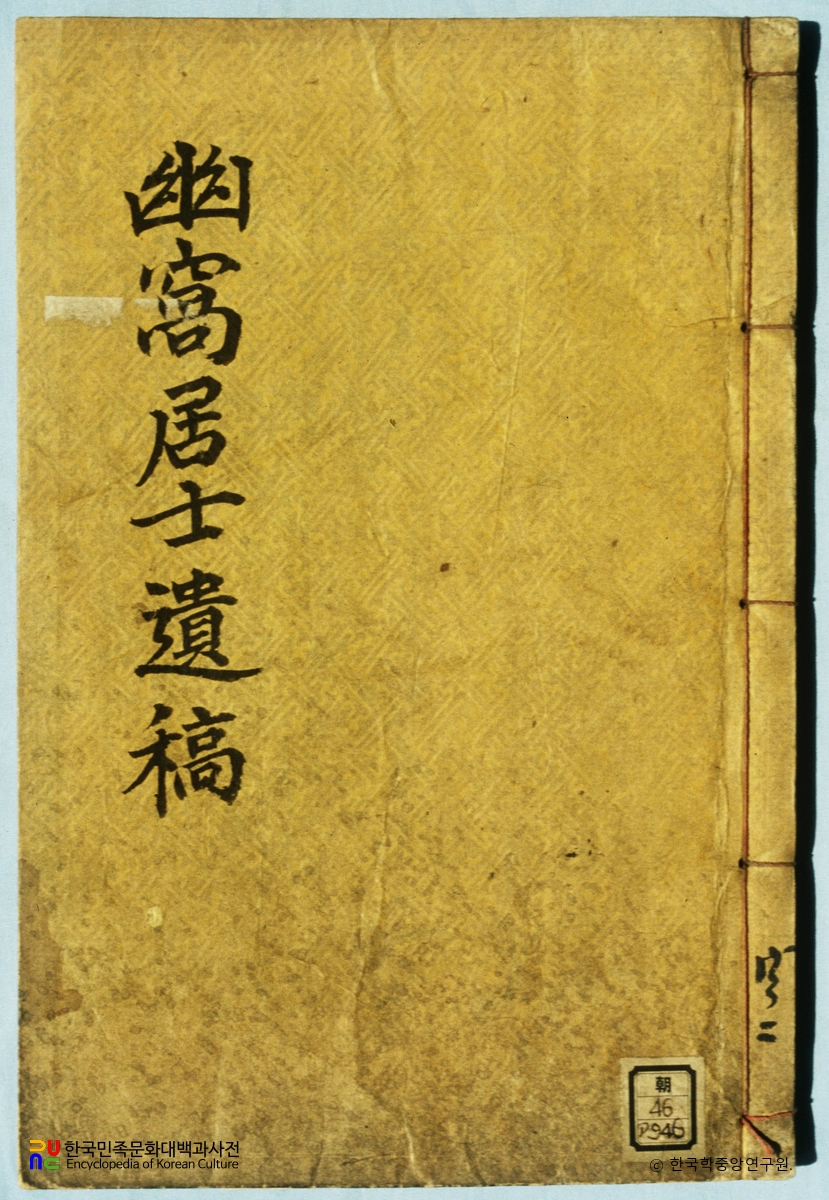 幽窩居士遺稿
共二
朝
46
한국민족문화대백과사전
Encyclopedia of Korean Culture
© 한국학중앙연구원.